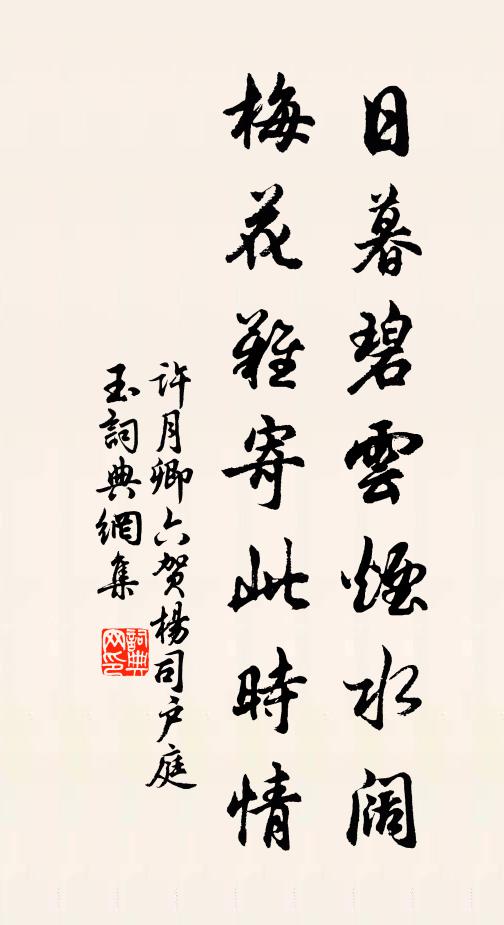 日暮碧雲煙水闊
梅花難寄此時情
許月卿六賀楊司戶庭
玉詞典網集
詞典网印